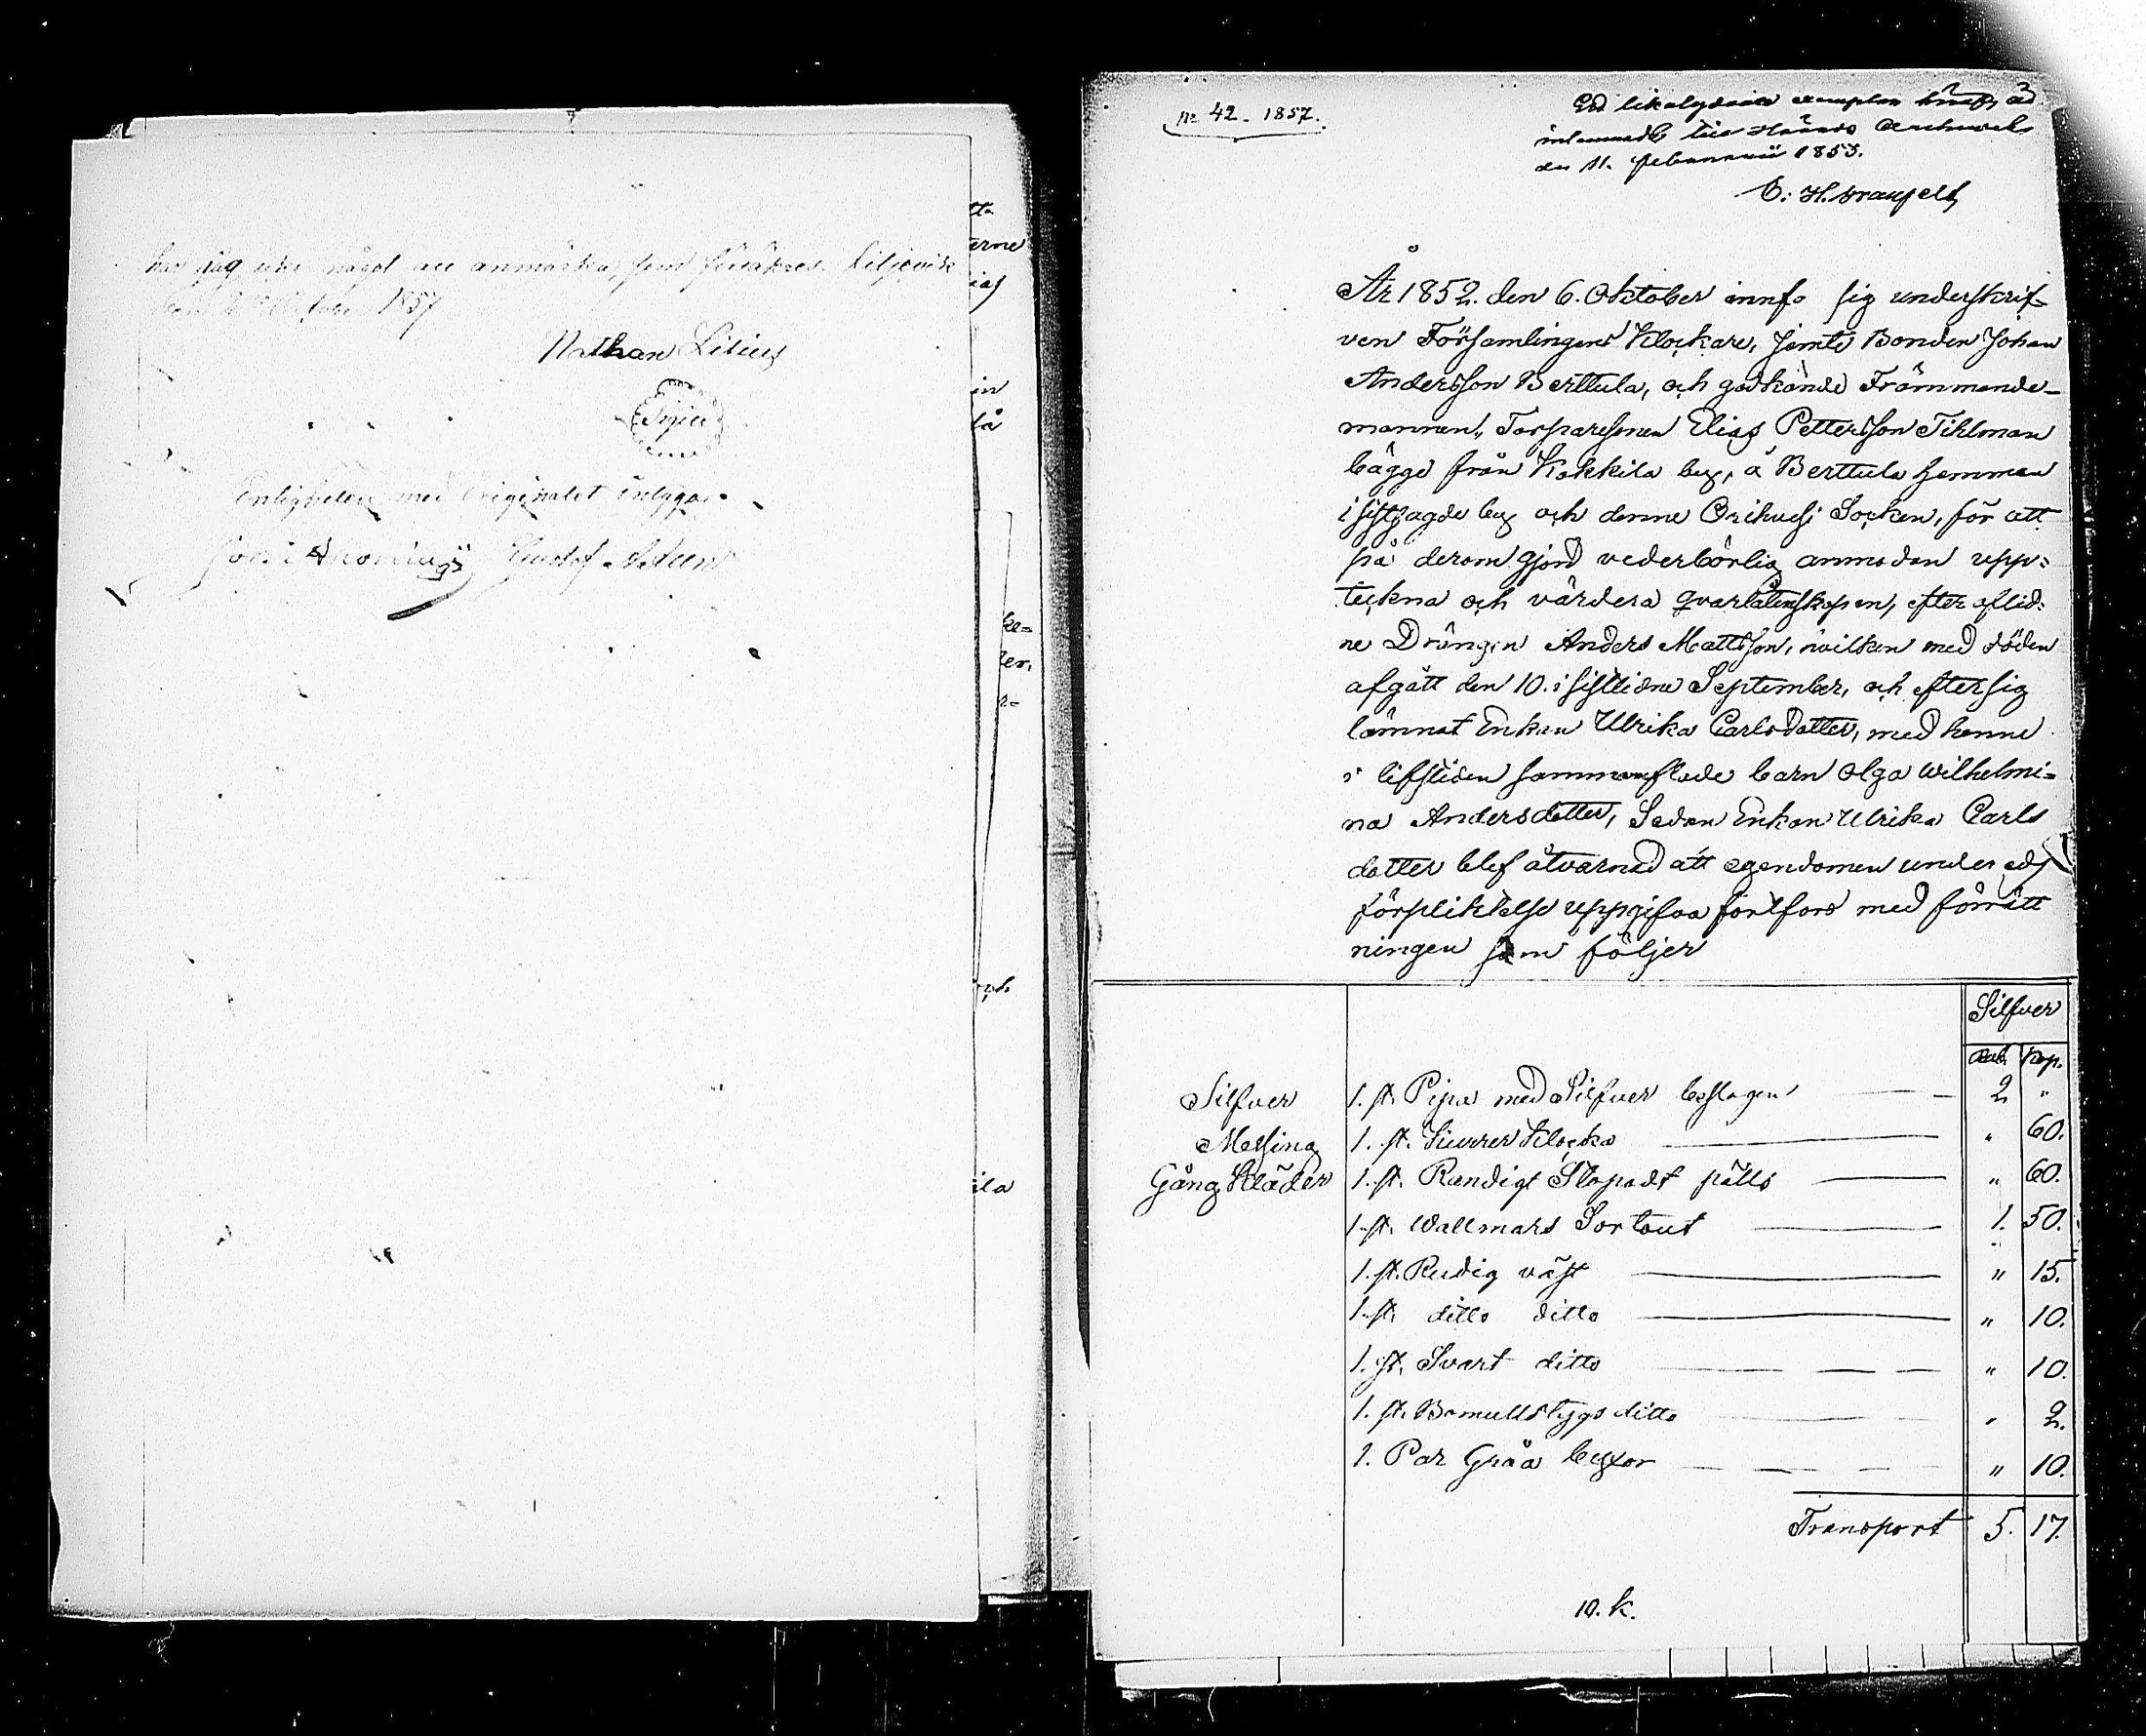 har jag icke något att anmärka, som Liljevik
den Oktober 1857
Nathan Lilius
Sigill
Enligheten med Originalet intyga.
Gustaf
tta
erne
in
ke=
ter.
och
ila
No 42. 1857.
Ett likalydande exemplar häraf, är
inlemnadt till Härads Archivet
den 11. februarii 1853.
C. H.
År 1852. den 6. Oktober innfo sig underskrif-
ven Församlingens Klockare, jemte Bonden Johan
Andersson Berttula, och godkände Främmande-
mannen, Torparesonen Elias Pettersson Tihlman
bägge från Kokkila by, å Berttula hemman
i sistsagde by och denne Orihvesi Socken, för att
på derom gjord vederbörlig anmodan upp=
teckna och värdera qvarlåtenskapen, efter aflid=
ne Drängen Anders Mattsson, hvilken med döden
afgått den 10. i sistlidne September, och efter sig
lämnat Enkan Ulrika Carlsdotter, med henne
i lifstiden sammanflade barn Olga Wilhelmi=
na Andersdotter, Sedan Enkan Ulrika Carls
dotter blef åtvarnad att egendomen under eds
förpliktelse uppgifva fortfors med förrätt
ningen som följer
Silfver
Rub. Kop.
Silfver 1. st. Pipa med Silfver beslagen 2 "
Messing 1. st. Klocka " 60.
Gång Kläder 1. st. Randigt Stopadt pälls " 60.
1. st. Wallmars Sortout 1. 50.
1. st. Rudig väst " 15.
1. st. ditto ditto " 10.
1. st. Svart ditto " 10.
1. st. Bomullstygs ditto " 2.
1. Par Gråa byxor " 10.
Transport 5. 17.
10. k.